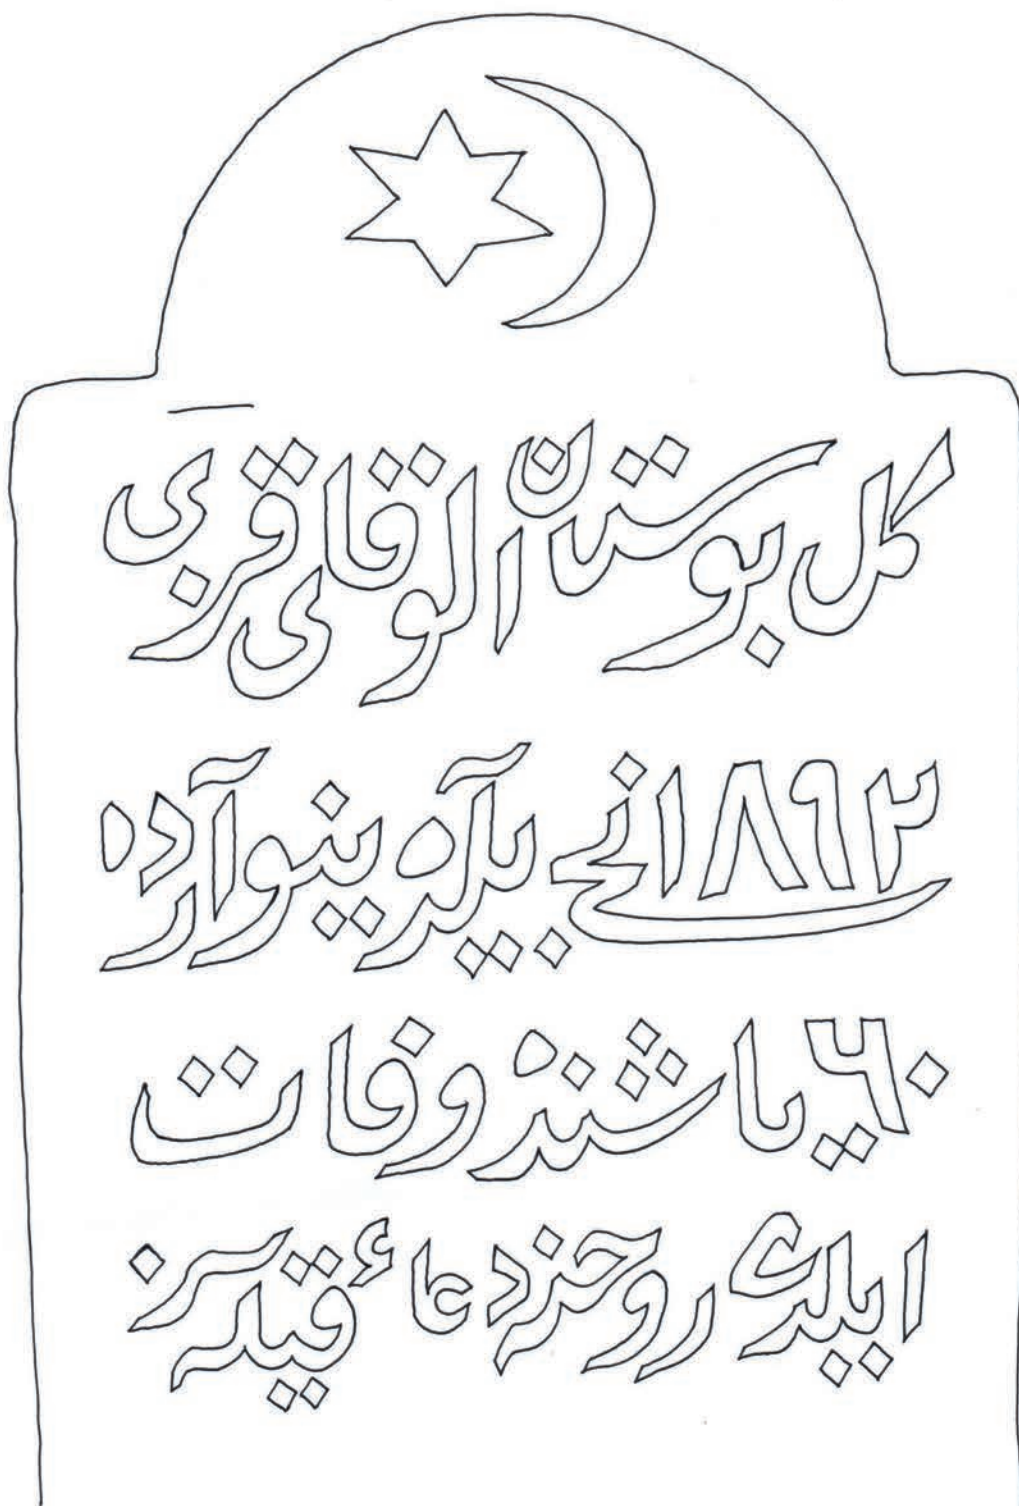 كل بوستان الوقاى قربى
١٨٩٢ نجى ييلده ينوآرده
٦٠ ياشنده وفات
ايلدى روحنه دعاء قيلسز